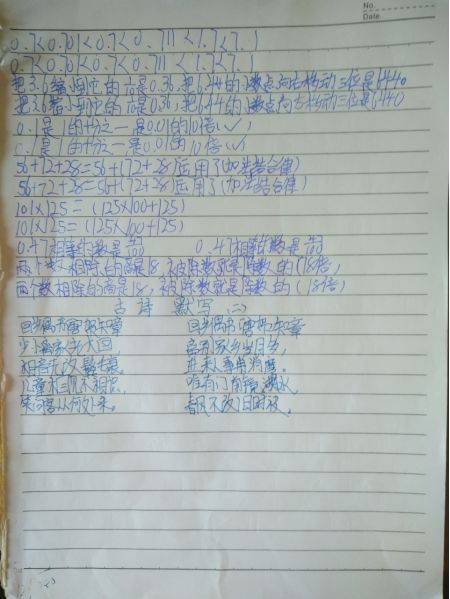 No.
Date
0.7<0.701<0.7<0.711<1.7<7.1
0.7<0.701<0.7<0.711<1.7<7.1
把3.6缩小到它的是0.36,把6.44的小数点向右移动三位是6440
把3.6缩小到它的是0.36,把6.44的小数点向右移动三位是6440
0.1是1的十分之一是0.01的10倍(✓)
0.1是1的十分之一是0.01的10倍(✓
56+72+28=56+(72+28)运用了(加法结合律)
56+72+28=56+(72+28)运用了(加法结合律)
101×125=(125×100+125)
101×125=(125×100+125)
0.47相等的数是 0.47相等的数是
两个数相除的商是18,被除数就是除数的(18倍)
两个数相除的商是18,被除数就是除数的(18倍)
古诗 默写(二)
回乡偶书 唐 贺知章 回乡偶书 唐 贺知章
少小离家老大回 离别家乡岁月多,
相音无改鬓毛衰 近来人事半消磨。
儿童相见不相识, 唯有门前镜湖水
笑问客从何处来。 春风不改旧时波。